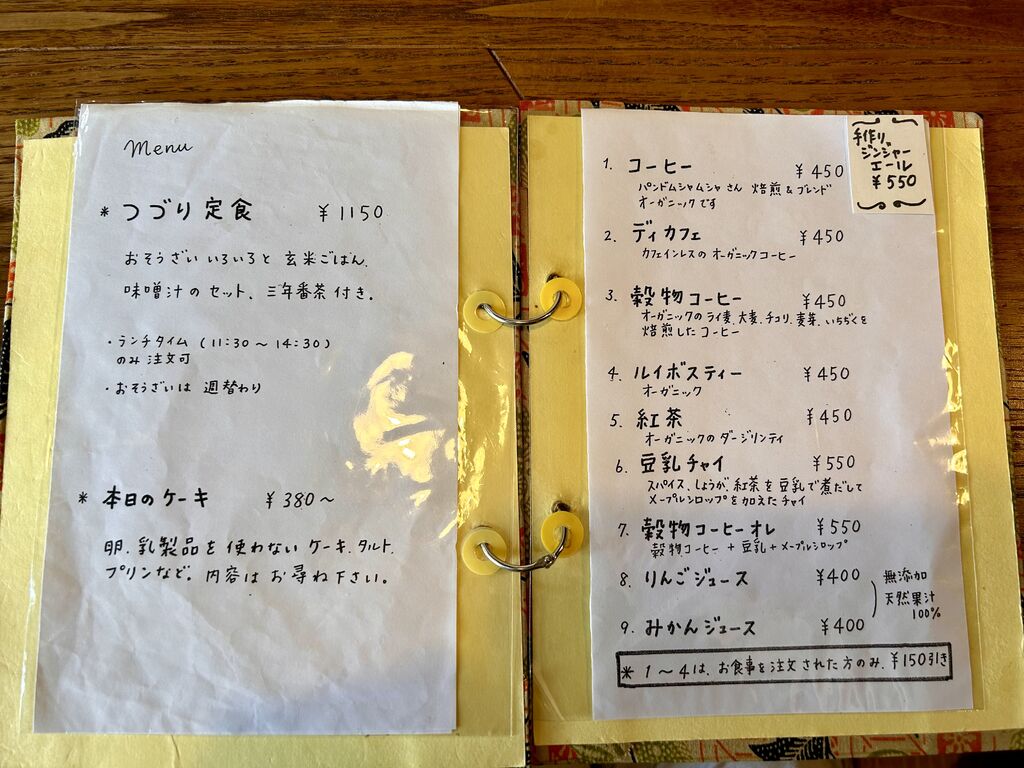 Menu
* つづり定食 ¥1150
おそうざいいろいろと玄米ごはん、
味噌汁のセット、三年番茶付き。
・ランチタイム (11:30～14:30)
のみ注文可
・おそうざいは 週替わり
* 本日のケーキ ¥380～
卵、乳製品を使わないケーキ、タルト、
プリンなど。内容はお尋ね下さい。
手作り
ジンジャー
エール
¥550
1. コーヒー ¥450
パンドムシャムシャさん 焙煎&ブレンド
オーガニックです
2. ディカフェ ¥450
カフェインレスのオーガニックコーヒー
3. 穀物コーヒー ¥450
オーガニックのライ麦、大麦、チコリ、麦芽、いちぢくを
焙煎したコーヒー
4. ルイボスティー ¥450
オーガニック
5. 紅茶 ¥450
オーガニックのダージリンティ
6. 豆乳チャイ ¥550
スパイス、しょうが、紅茶を豆乳で煮だして
メープルシロップを加えたチャイ
7. 穀物コーヒーオレ ¥550
穀物コーヒー+豆乳+メープルシロップ
8. りんごジュース ¥400
9. みかんジュース ¥400
無添加
天然果汁
100%
* 1～4は、お食事を注文された方のみ、¥150引き